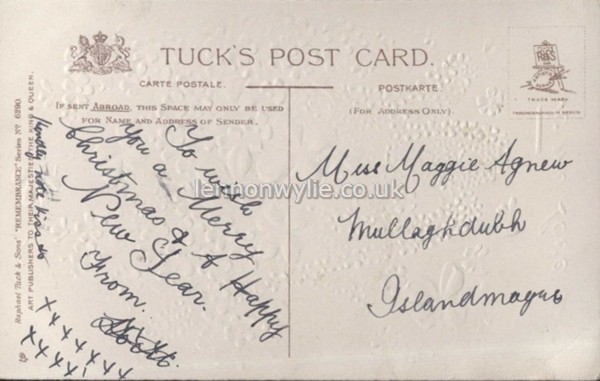 TUCK'S POST CARD.
CARTE POSTALE.
POSTKARTE.
IF SENT ABROAD, THIS SPACE MAY ONLY BE USED
FOR NAME AND ADDRESS OF SENDER.
(FOR ADDRESS ONLY).
TRADE MARK
Raphael Tuck & Sons' "REMEMBRANCE" Series No 6290.
ART PUBLISHERS TO THEIR MAJESTIES THE KING & QUEEN.
To wish
you a Merry
Christmas & A Happy
New Year.
From.
xxxxxxx
Miss Maggie Agnew
Mullaghdubh
Islandmagee
lennonwylie.co.uk